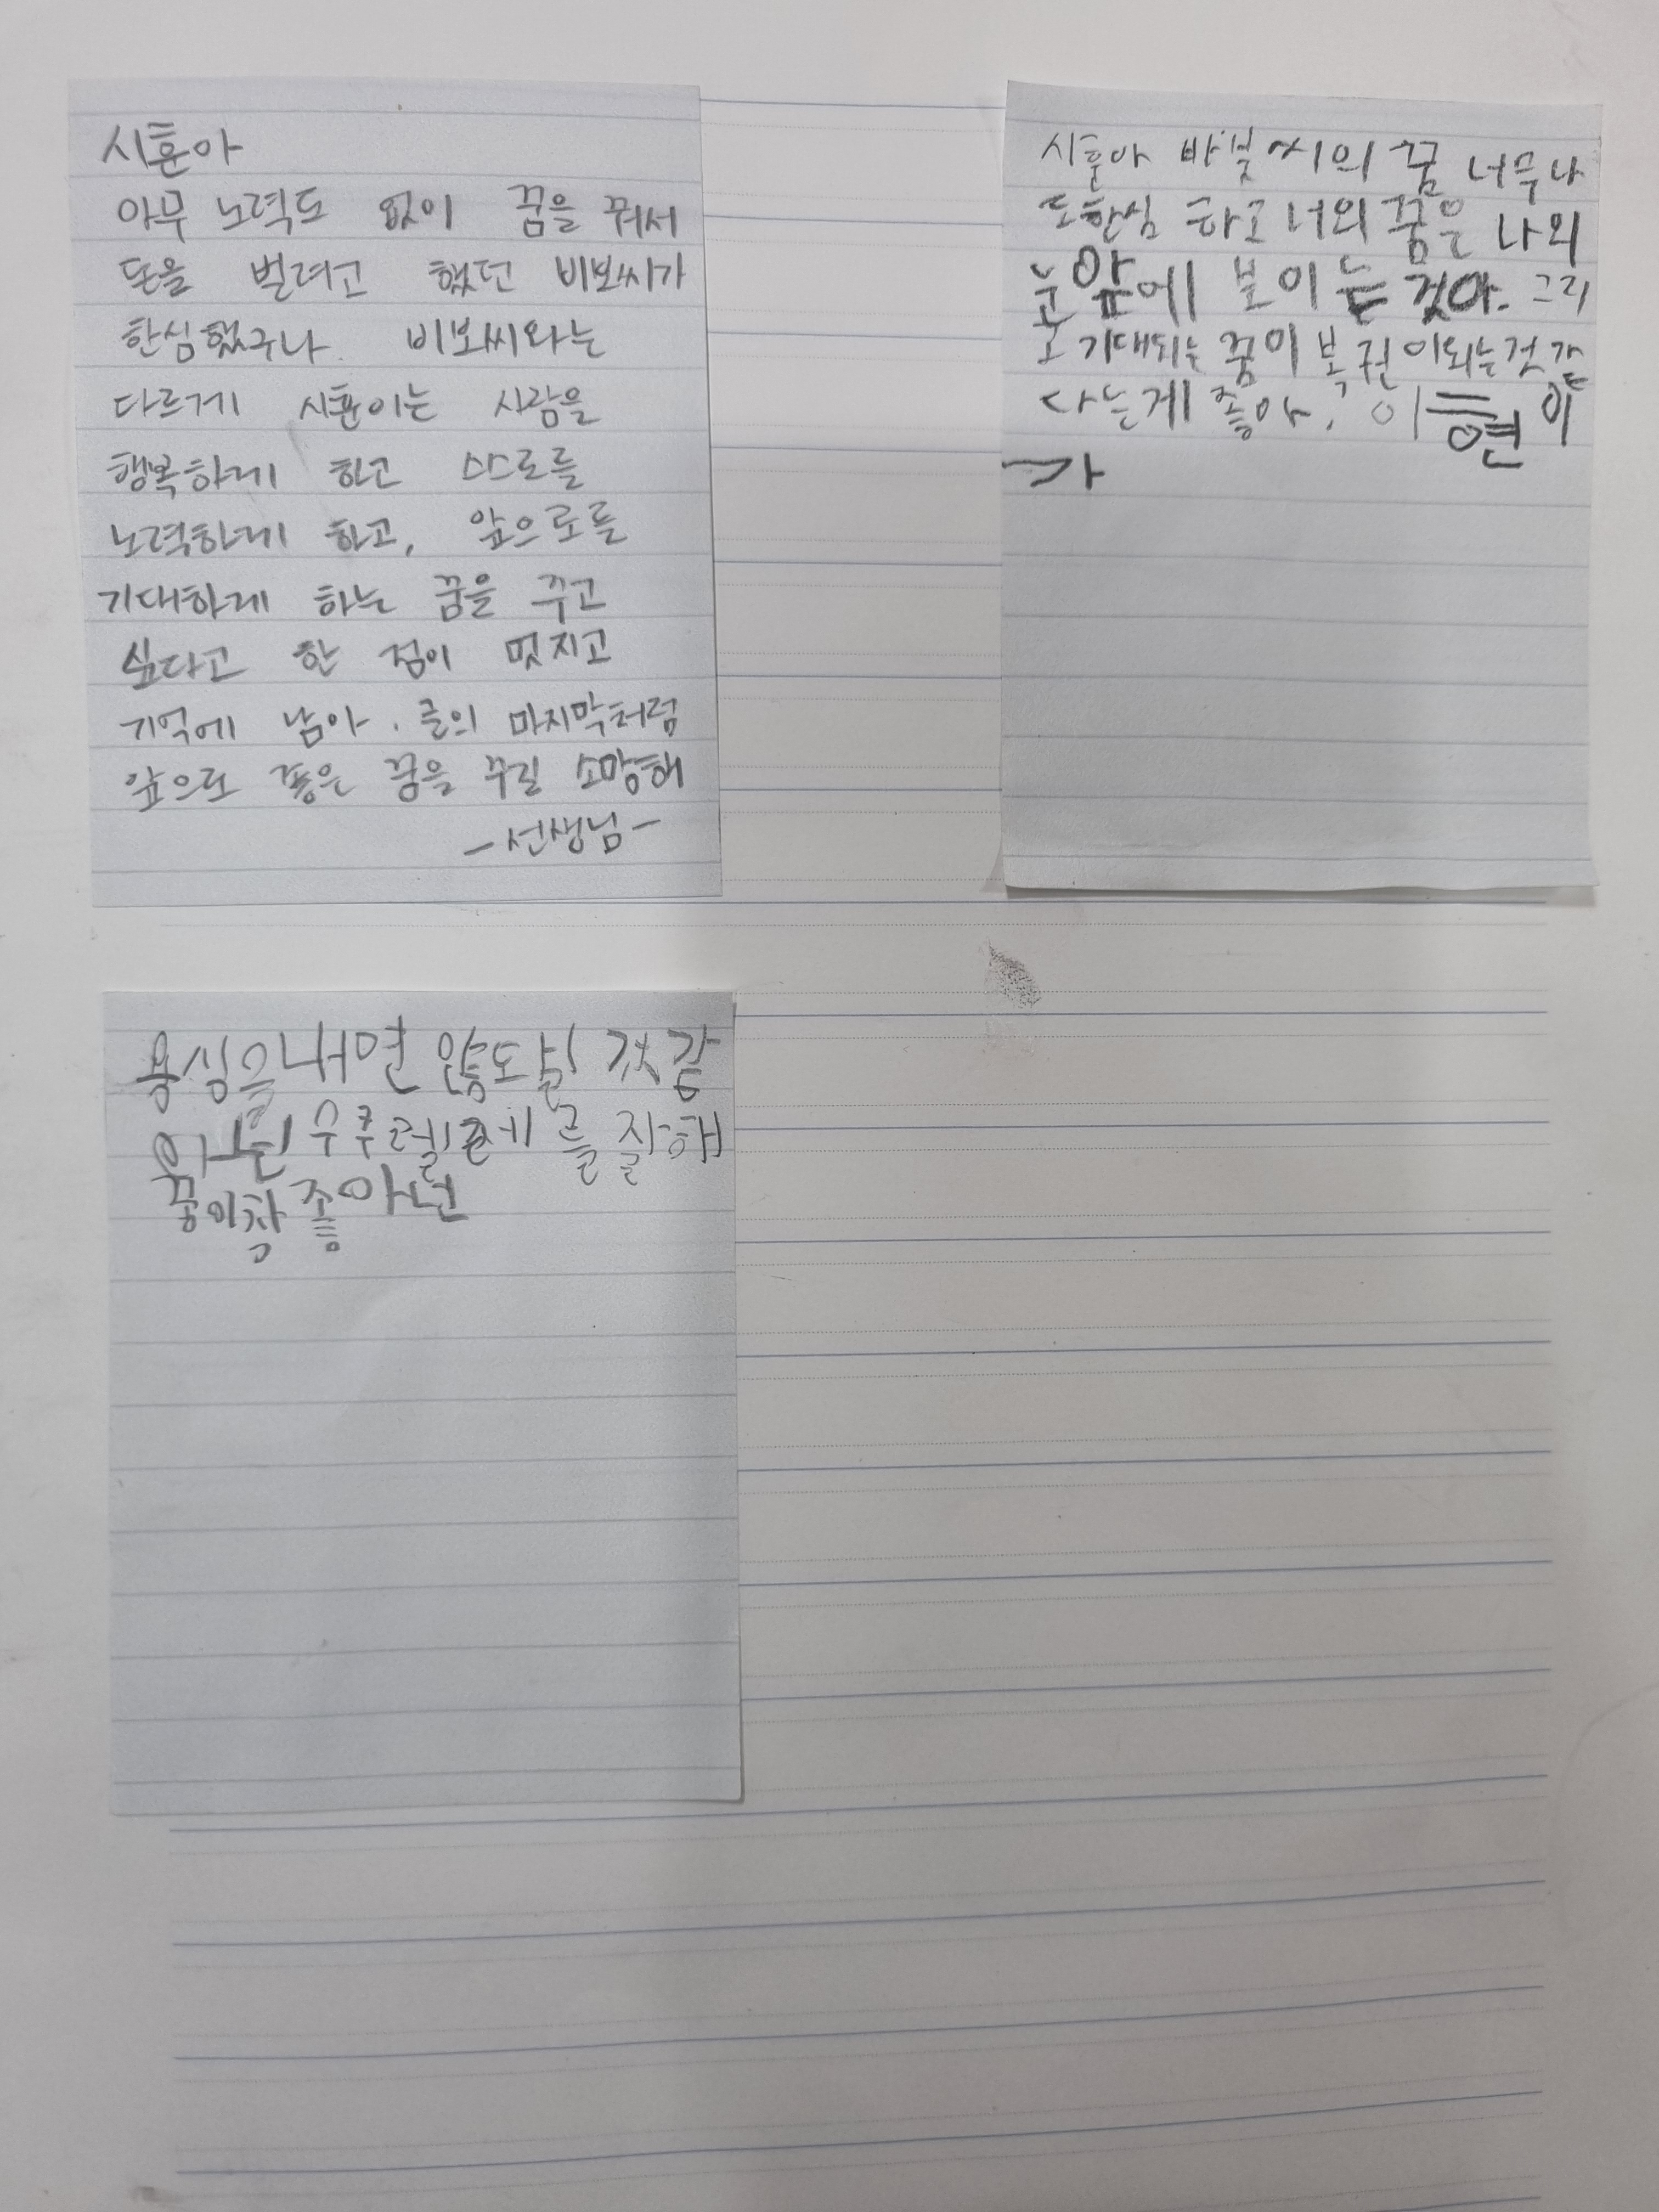 시훈아
아무 노력도 없이 꿈을 꿔서
돈을 벌려고 했던 비보씨가
한심했구나. 비보씨와는
다르게 시훈이는 사람을
행복하게 하고 스스로를
노력하게 하고, 앞으로를
기대하게 하는 꿈을 꾸고
싶다고 한 점이 멋지고
기억에 남아. 글의 마지막처럼
앞으로 좋은 꿈을 꾸길 소망해
-선생님-
시훈아 바봊씨의 꿈 너무나
도한심 하고 너의 꿈은 나의
눈앞에 보이는 것아. 그리
고 기대되는 꿈이 복권이되는것 같
다는게 좋아. 이현이
가
용심을내면 않도-
꿈이참좋아